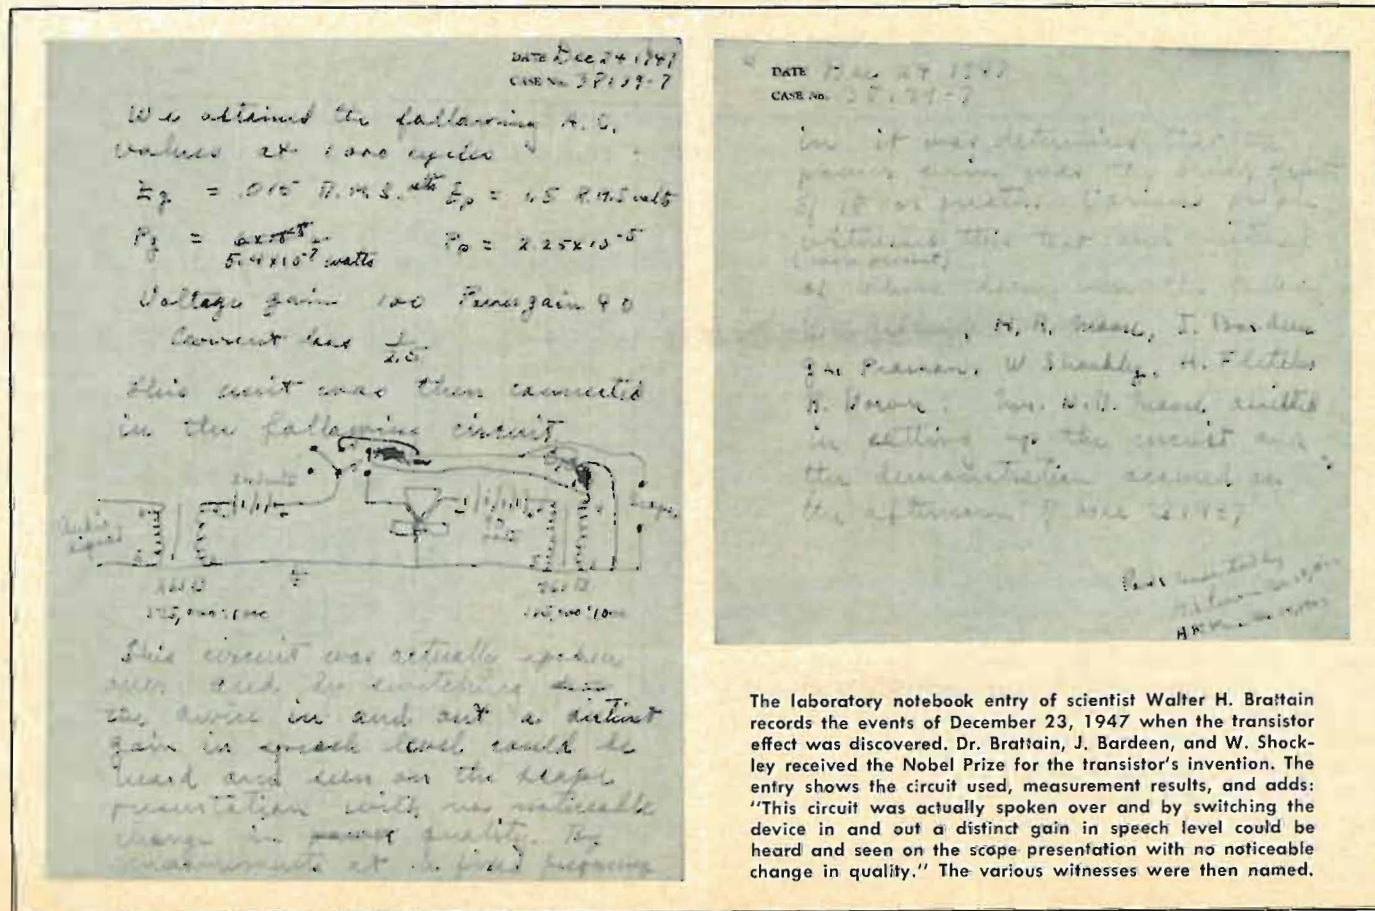 DATE Dec 24 1947
CASE No. 38139-7
We attained the following A.C.
values at 1000 cycles
Eg = .015 R.M.S. volts Ep = 1.5 R.M.S volts
Pg = 5.4 x 10⁻⁷ watts Pp = 2.25 x 10⁻⁵
Voltage gain 100 Power gain 40
Current loss 1/2.5
This unit was then connected
in the following circuit
Audio signal
scope
261 B
261 B
125,000:1000
125,000:1000
This circuit was actually spoken
over and by switching
the device in and out a distinct
gain in speech level could be
heard and seen on the scope
presentation with no noticeable
change in quality. By
measurements at a fixed frequency
DATE Dec 24 1947
CASE No. 38139-7
in it was determined that the
power gain was the order of
of 18 or greater. Various people
witnessed this test and listened
(were present)
of whom some were the following
H. R. Moore, J. Bardeen
Pearson, W Shockley, H. Fletcher
R. Bown. Mr. H.R. Moore assisted
in setting up the circuit and
the demonstration occurred on
the afternoon of Dec 23 1947
Read
The laboratory notebook entry of scientist Walter H. Brattain
records the events of December 23, 1947 when the transistor
effect was discovered. Dr. Brattain, J. Bardeen, and W. Shock-
ley received the Nobel Prize for the transistor's invention. The
entry shows the circuit used, measurement results, and adds:
"This circuit was actually spoken over and by switching the
device in and out a distinct gain in speech level could be
heard and seen on the scope presentation with no noticeable
change in quality." The various witnesses were then named.